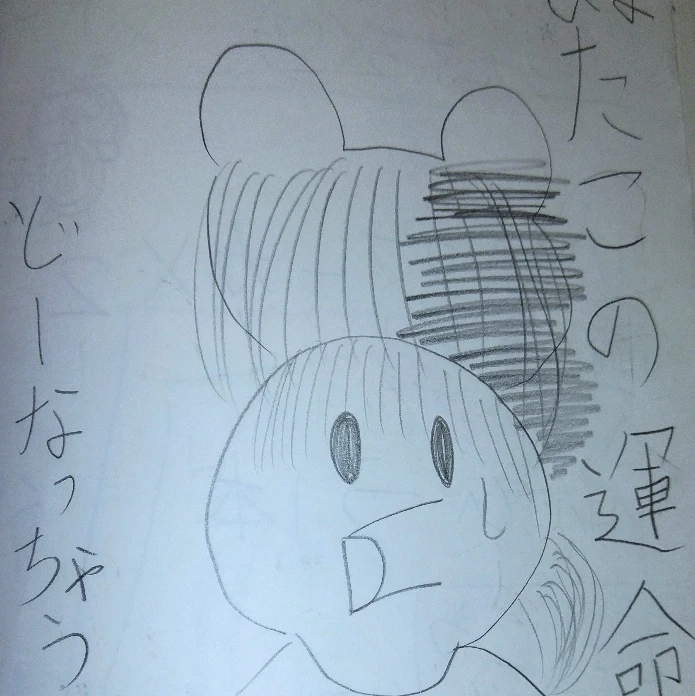 たこの運命
どーなっちゃう